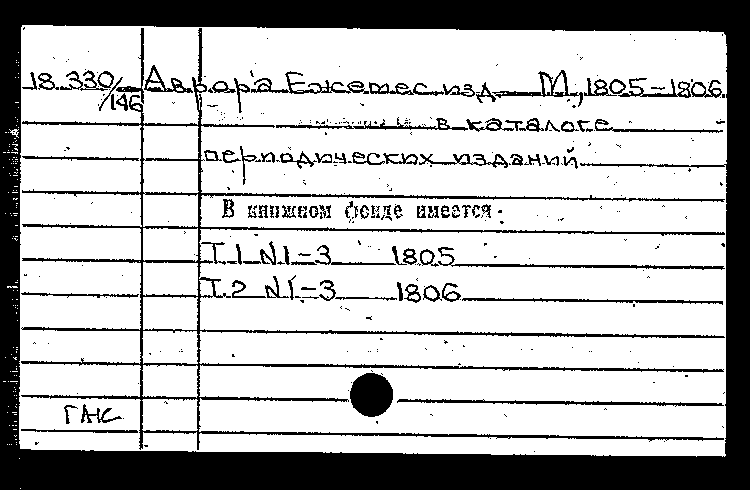 18.330/146 Аврора Ежемес. изд. М., 1805-1806
в каталоге
периодических изданий
В книжном фонде имеется.
Т.1 N1-3 1805
Т.2 N1-3 1806
ГАК